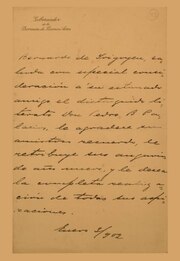 Gobernador
de la
Provincia de Buenos Aires
Bernardo de Irigoyen, sa-
luda con especial consi-
deración á su estimado
amigo el distinguido li-
terato Don Pedro B. Pa-
lacios, le agradece su
amistoso recuerdo, le
retribuye sus augurios
de año nuevo, y le desea
la completa realiza-
ción de todas sus aspi-
raciones.
Enero 2/902